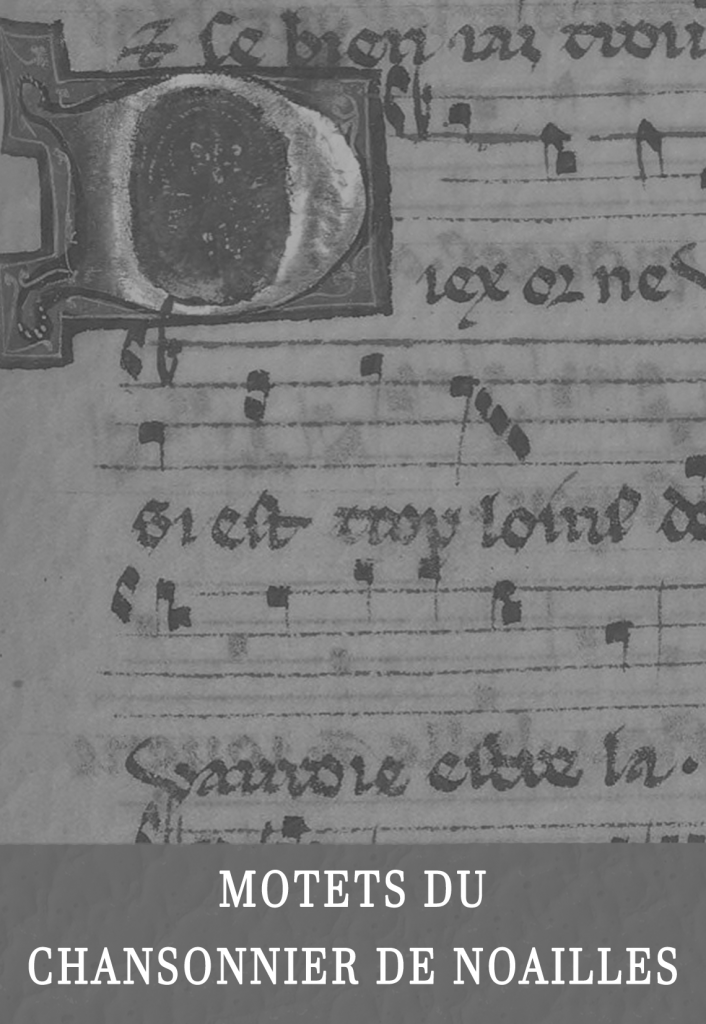 Z se bien iai trou
D
iex or ne v
Si est trop loins de
Vauroie estre la.
MOTETS DU
CHANSONNIER DE NOAILLES